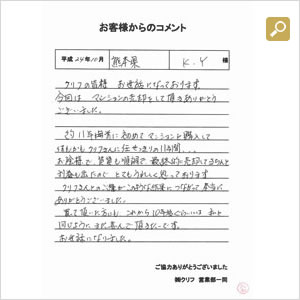 お客様からのコメント
平成 24年10月 熊本県 K.Y 様
クリフの皆様 お世話になっております。
今回は マンションの売却をして頂きありがとう
ございました。
約11年前に初めてマンションを購入して
クリフさんに任せっきりの11年間、、、
お陰様で 賃貸も順調で 最終的に売却してもらえ
利益も出たので とてもうれしく思っております。
クリフさんとのご縁がこのような結果につながって 本当に
ありがとうございました。
買って頂いた方にも これから10年後ぐらいには 私と
同じように また喜んで頂きたいです。
お世話になりました。
ご協力ありがとうございました
㈱クリフ 営業部一同